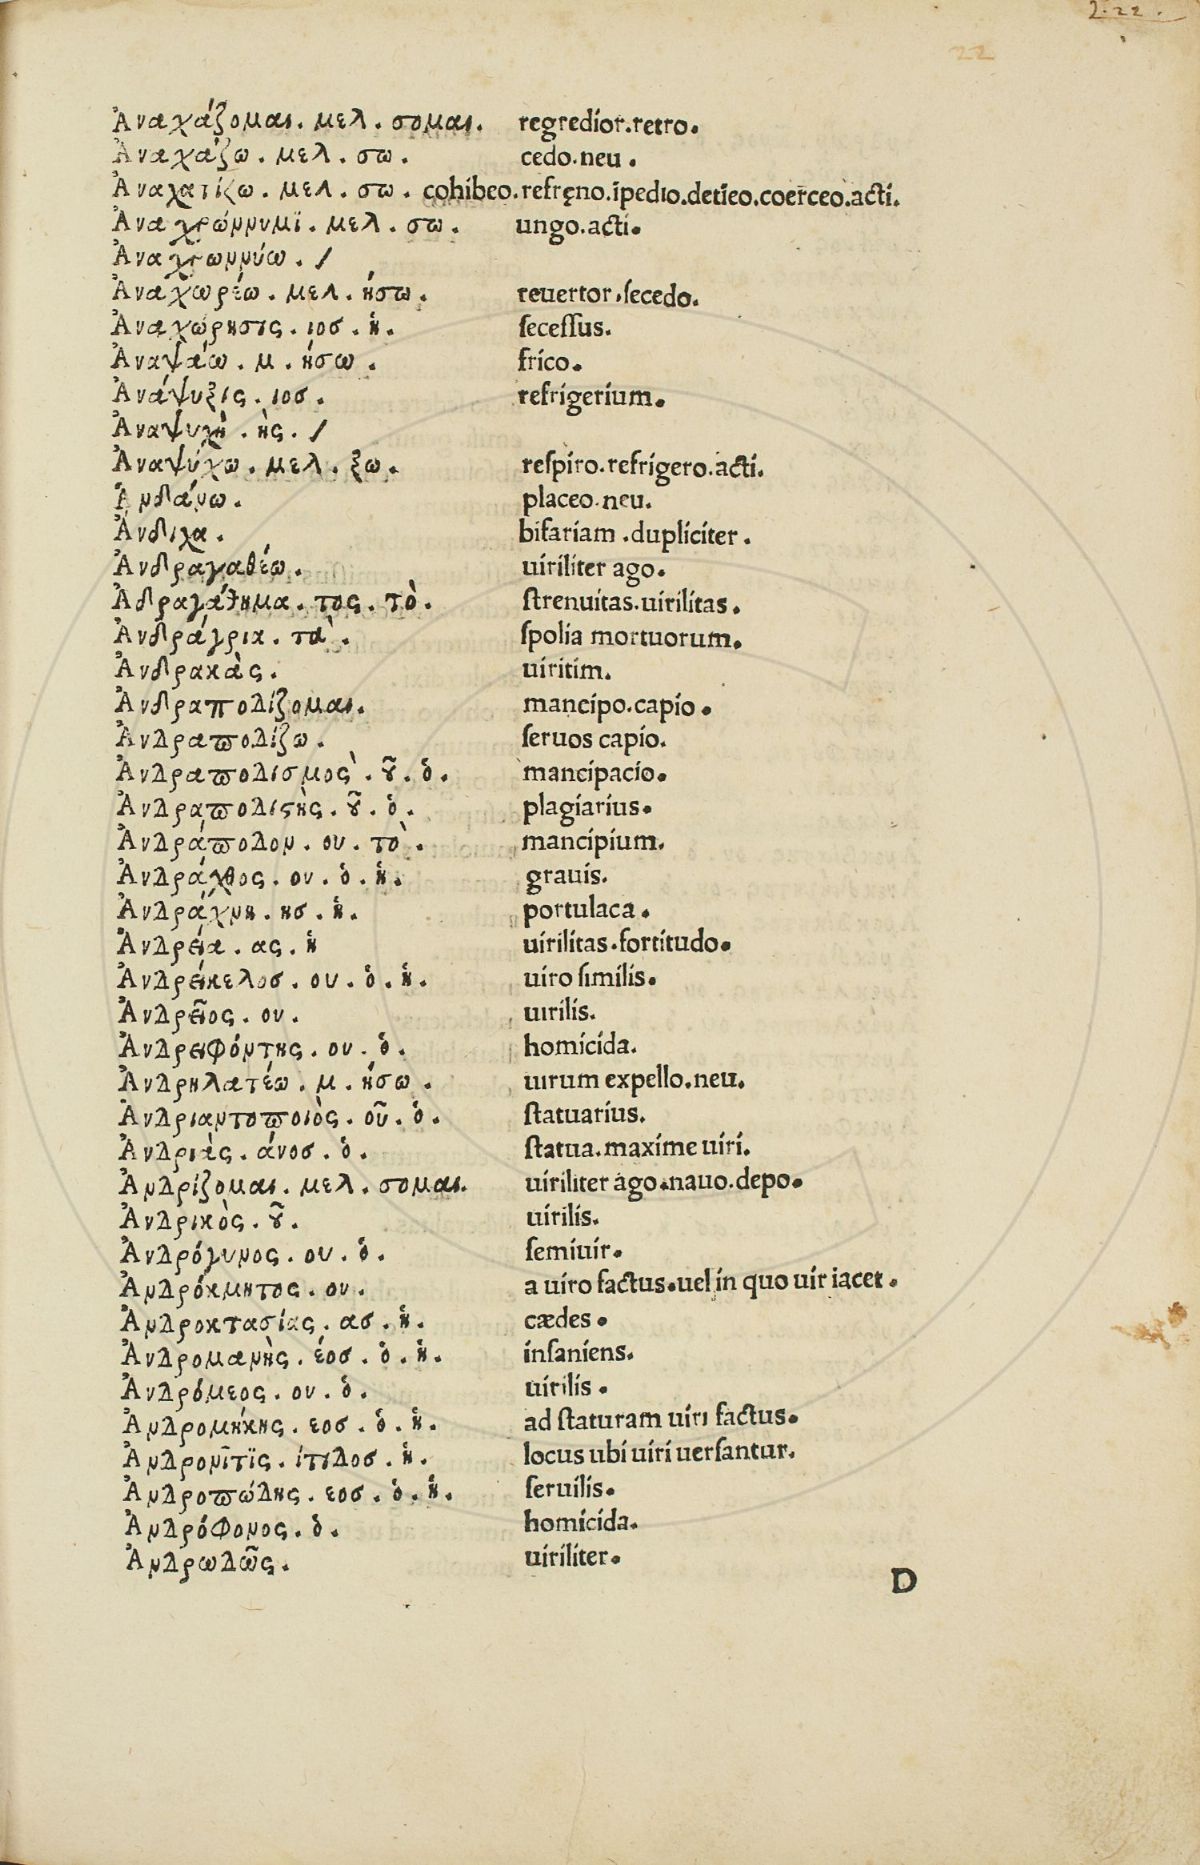 2.22.
22
Ἀναχάζομαι. μελ. σομαι. regredior.retro.
Ἀναχάζω. μελ. σω. cedo.neu.
Ἀναχατίζω. μελ. σω. cohibeo.refręno.īpedio.detīeo.coerceo.acti.
Ἀναχρώννυμϊ. μελ. σω. ungo.acti.
Ἀναχρωννύω. /
Ἀναχωρέω. μελ. ήσω. reuertor.secedo.
Ἀναχώρησις. ιοσ. ἡ. secessus.
Ἀναψάω. μ. ήσω. frico.
Ἀνάψυξις. ιοσ. refrigerium.
Ἀναψυχὴ. ῆς. /
Ἀναψύχω. μελ. ξω. respiro.refrigero.acti.
Ἁνδάνω. placeo.neu.
Ἄνδιχα. bifariam.dupliciter.
Ἀνδραγαθέω. uiriliter ago.
Ἀδραγάθημα. τος. τὸ. strenuitas.uirilitas.
Ἀνδράγρια. τὰ. spolia mortuorum.
Ἀνδρακὰς. uiritim.
Ἀνδραποδίζομαι. mancipo.capio.
Ἀνδραποδίζω. seruos capio.
Ἀνδραποδισμος`. οῦ. ὁ. mancipacio.
Ἀνδραποδιστὴς. οῦ. ὁ. plagiarius.
Ἀνδράποδον. ου. τὸ. mancipium.
Ἀνδράχθος. ου. ὁ. ἡ. grauis.
Ἀνδράχνη. ησ. ἡ. portulaca.
Ἀνδρεία. ας. ἡ uirilitas.fortitudo.
Ἀνδρείκελοσ. ου. ὁ. ἡ. uiro similis.
Ἀνδρεῖος. ου. uirilis.
Ἀνδρειφόντης. ου. ὁ. homicida.
Ἀνδρηλατέω. μ. ήσω. uirum expello.neu.
Ἀνδριαντοποιὸς. οῦ. ὁ. statuarius.
Ἀνδριὰς. άνοσ. ὁ. statua.maxime uiri.
Ἀνδρίζομαι. μελ. σομαι. uiriliter ago.nauo.depo.
Ἀνδρικὸς. οῦ. uirilis.
Ἀνδρόγυνος. ου. ὁ. semiuir.
Ἀνδρόκμητος. ου. a uiro factus.uel in quo uir iacet.
Ἀνδροκτασίας. ασ. ἡ. cædes.
Ἀνδρομανὴς. έοσ. ὁ. ἡ. insaniens.
Ἀνδρόμεος. ου. ὁ. uirilis.
Ἀνδρομήκης. εοσ. ὁ. ἡ. ad staturam uiri factus.
Ἀνδρονῖτϊς. ίτιδοσ. ἡ. locus ubi uiri uersantur.
Ἀνδροπώδης. εοσ. ὁ. ἡ. seruilis.
Ἀνδρόφονος. ὁ. homicida.
Ἀνδρωδῶς. uiriliter.
D